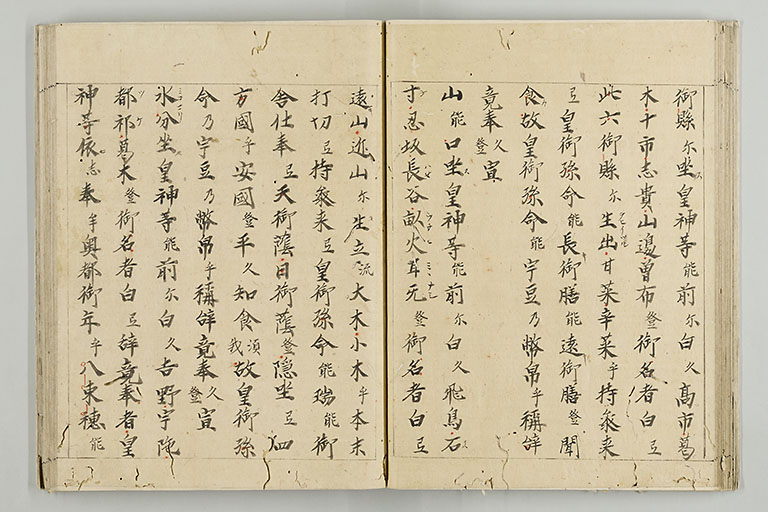 御縣尓坐皇神等能前尓白久髙市葛
木十市志貴山邊曽布登御名者白弖
此六御縣尓生出甘菜辛菜乎持叅来
弖皇御孫命能長御膳能遠御膳登聞
食故皇御孫命能宇豆乃幣帛乎稱辞
竟奉久登宣
山能口坐皇神等能前尓白久飛鳥石
寸忍坂長谷畝火耳无登御名者白弖
遠山近山尓生立流大木小木乎本末
打切弖持叅来弖皇御孫命能瑞能御
舎仕奉弖天御蔭日御蔭登隠坐弖四
方國乎安國登平久知食須我故皇御孫
命乃宇豆乃幣帛乎稱辞竟奉久登宣
水分坐皇神等能前尓白久吉野宇陁
都祁葛木登御名者白弖辞竟奉者皇
神等依志奉牟奥都御年乎八束穂能